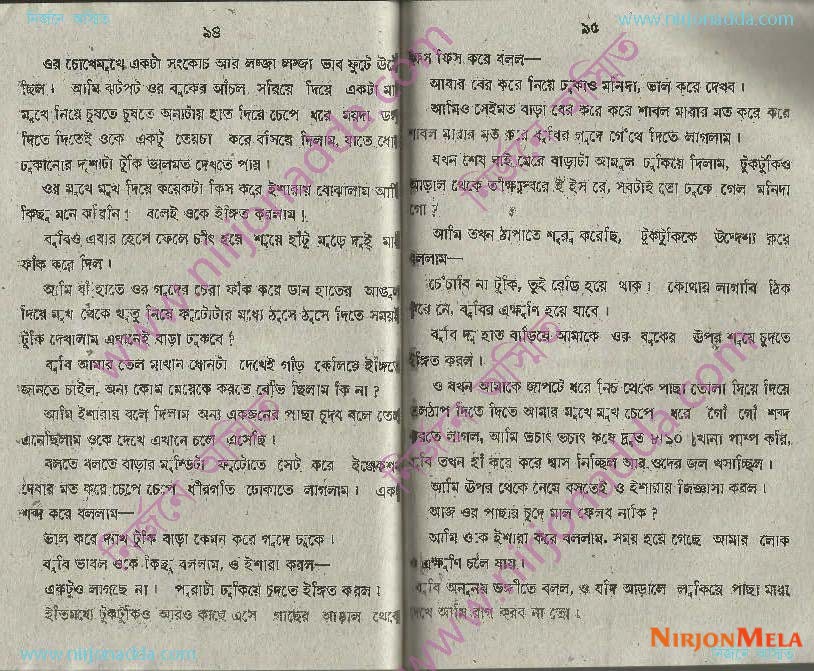 নির্জনে অস্মিত
www.nirjonadda.com
১৪
ওর চোখেমুখে একটা সংকোচ আর লজ্জা লজ্জা ভাব ফুটে উঠে
ছিল। আমি ঝটপট ওর বুকের আঁচল সরিয়ে দিয়ে একটা
মুখে নিয়ে চুষতে চুষতে অন্যটায় হাত দিয়ে চেপে ধরে ময়দা
দিতে দিতেই ওকে একটু তেরচা করে বসিয়ে দিলাম, যাতে
ঢুকানোর দৃশ্যটা টুঁকি ভালমত দেখতে পায়।
ওর মুখে মুখ দিয়ে কয়েকটা কিস করে ইশারায় বোঝালাম আমি
কিছু মনে করিনি। বলেই ওকে ইঙ্গিত করলাম।
বুবিও এবার হেসে ফেলে চীৎ হয়ে শুয়ে হাঁটু মুড়ে দুই
ফাঁক করে দিল।
আমি বাঁ হাতে ওর গুদের চেরা ফাঁক করে ডান হাতের আঙুল
দিয়ে মুখ থেকে থুতু নিয়ে ফুটোটার মধ্যে ঠুসে ঠুসে দিতে সময়
টুঁকি দেখালাম এখানেই বাড়া ঢুকবে?
বুবি আমার তেল মাখান ধোনটা দেখেই গাঁড় কেলিয়ে ইঙ্গিতে
জানতে চাইল, অন্য কোন মেয়েকে করতে রেডি ছিলাম কি না?
আমি ইশারায় বলে দিলাম অন্য একজনের পাছা চুদব বলে তেল
এনেছিলাম ওকে দেখে এখানে চলে এসেছি।
বলতে বলতে বাড়ার মুন্ডিটা ফুটোতে সেট করে ইঞ্জেকশন
দেবার মত করে চেপে চেপে ধীরগতি ঢোকাতে লাগলাম।
শব্দ করে বললাম—
ভাল করে দ্যাখ টুঁকি বাড়া কেমন করে গুদে ঢুকে।
বুবি ভাবল ওকে কিছু বললাম, ও ইশারা করল—
একটুও লাগছে না। পুরাটা ঢুকিয়ে চুদতে ইঙ্গিত করল।
ইতিমধ্যে টুকটুকিও আরও কাছে এসে গাছের আড়াল থেকে
১৫
ফিস ফিস করে বলল—
আবার বের করে নিয়ে ঢুকাও মনিদা, ভাল করে দেখব।
আমিও সেইমত বাড়া বের করে করে শাবল মারার মত করে করে
শাবল মারার মত করে বুবির গুদে গেঁথে দিতে লাগলাম।
যখন শেষ ঘাই মেরে বাড়াটা আমূল ঢুকিয়ে দিলাম, টুকটুকিও
আড়াল থেকে তীক্ষ্নস্বরে ই ইস রে, সবটাই তো ঢুকে গেল মনিদা
গো?
আমি তখন ঠাপাতে শুরু করেছি, টুকটুকিকে উদ্দেশ্য করে
বললাম—
চেঁচাবি না টুঁকি, তুই রেডি হয়ে থাক। কোথায় লাগাবি ঠিক
করে নে, বুবির এক্ষুণি হয়ে যাবে।
বুবি দু হাত বাড়িয়ে আমাকে ওর বুকের উপর শুয়ে চুদতে
ইঙ্গিত করল।
ও যখন আমাকে জাপটে ধরে নিচ থেকে পাছা তোলা দিয়ে দিয়ে
তলঠাপ দিতে দিতে আমার মুখে মুখ চেপে ধরে গোঁ গোঁ শব্দ
করতে লাগল, আমি ভচাৎ ভচাৎ কষে দ্রুত ৮।১০ খানা পাম্প করি,
বুবি তখন হাঁ করে করে শ্বাস নিচ্ছিল আর গুদের জল খসাচ্ছিল।
আমি উপর থেকে নেমে বসতেই ও ইশারায় জিজ্ঞাসা করল।
আজ ওর পাছায় চুদে মাল ফেলব নাকি?
আমি ওকে ইশারা করে বললাম, সময় হয়ে গেছে আমার লোক
এক্ষুণি চলে যায়।
বুবি অনুনয় ভঙ্গীতে বলল, ও যদি আড়ালে লুকিয়ে পাছা মারা
দেখে আমি রাগ করব না তো।
NIRJONMELA
www.nirjonadda.com
নির্জনে অস্মিত